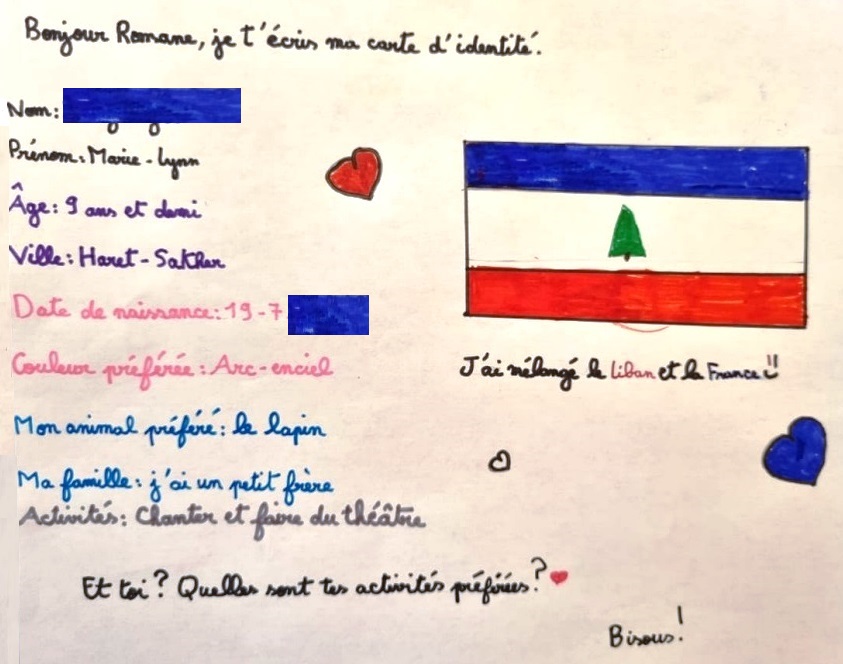 Bonjour Romane, je t'écris ma carte d'identité.
Nom:
Prénom: Marie-Lynn
Âge: 9 ans et demi
Ville: Haret-Sakher
Date de naissance: 19-7
Couleur préférée: Arc-enciel
J'ai mélangé le Liban et la France
Mon animal préféré: le lapin
Ma famille: j'ai un petit frère
Activités: Chanter et faire du théâtre
Et toi? Quelles sont tes activités préférées?
Bisous!